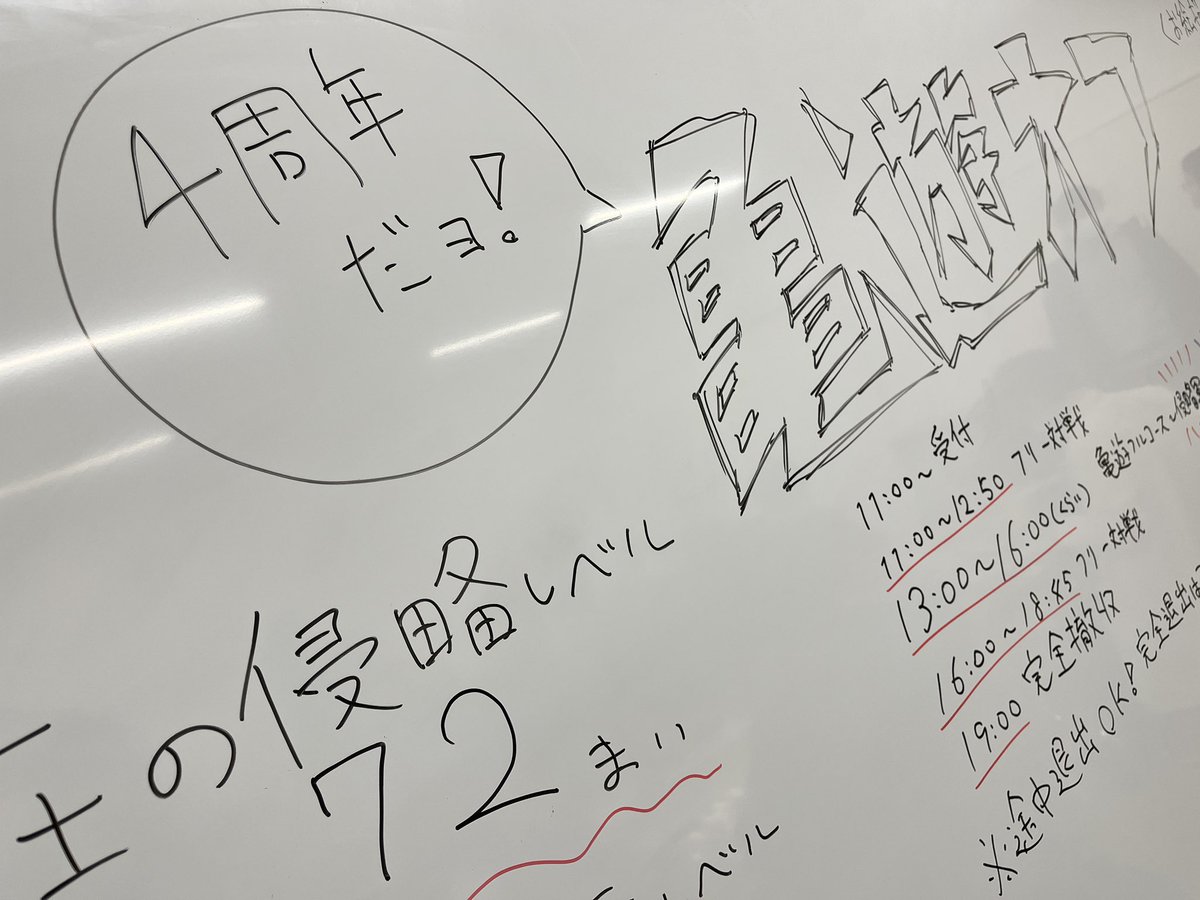 4周年
だョ!
亀遊オフ
11:00～受付
11:00～12:50 フリー対戦
13:00～16:00(くらい) 亀遊フルコース
16:00～18:45 フリー対戦
19:00 完全撤収
※途中退出OK! 完全退出は
王の侵略レベル
72まい
レベル